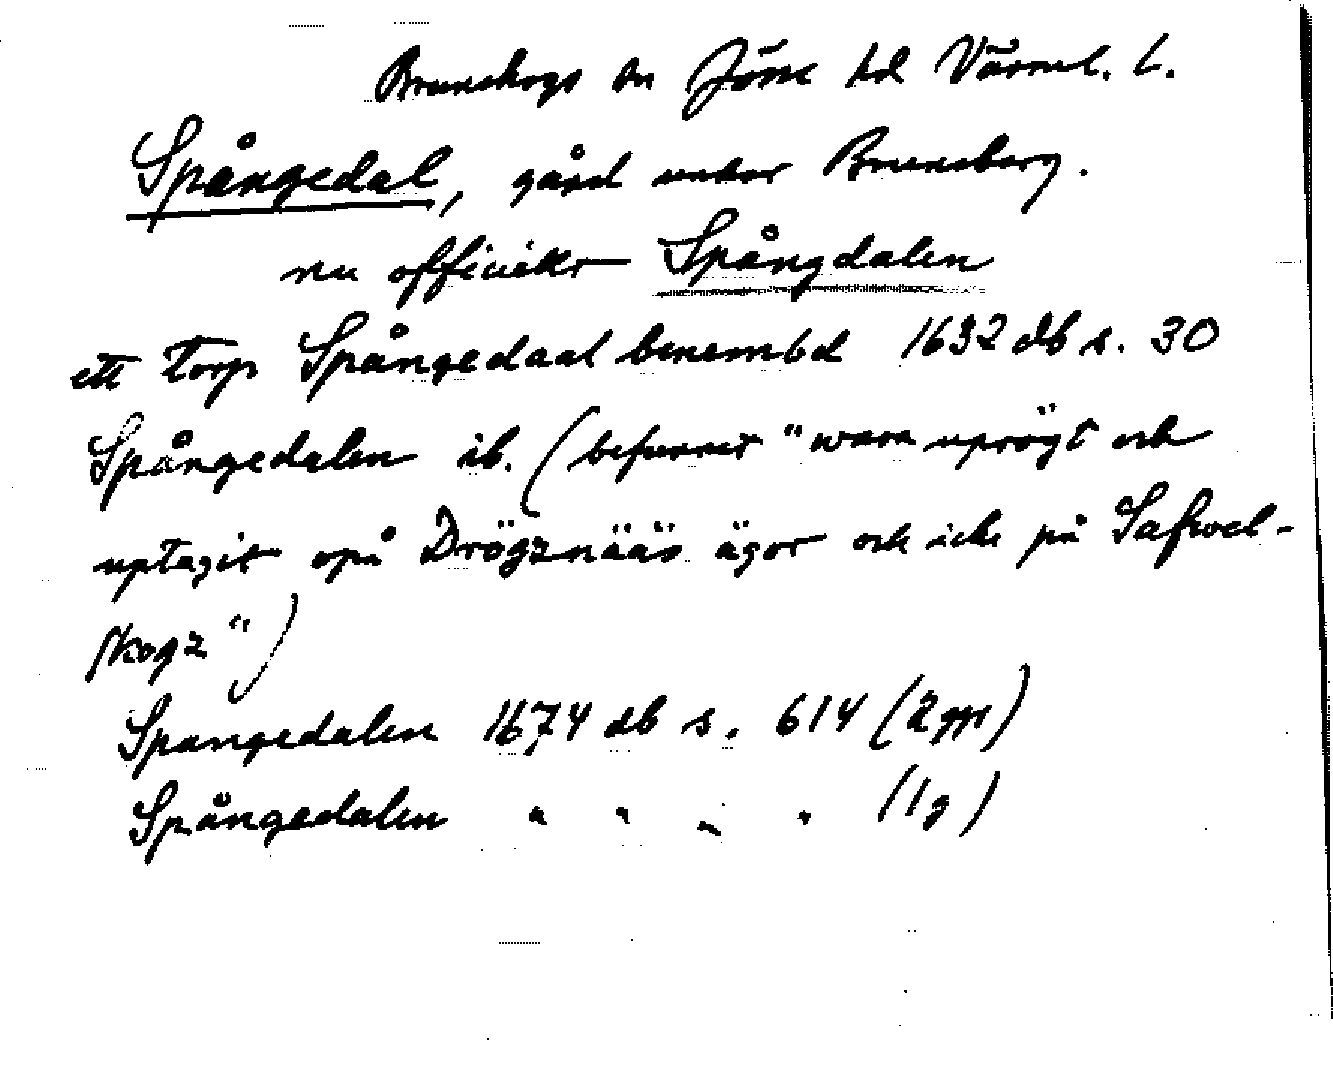 Brunskogs sn Jösse hd Värml. l.
Spångedal, gård under Brunsberg.
nu officiellt Spångdalen
ett torp Spångedaal benembd 1632 db s. 30
Spångedalen ib. (befunnit "wara uprögt och
uptagit opå Drögznääs ägor och icke på Safwel-
skogz")
Spangedalen 1674 db s. 614 (2 ggr)
Spångedalen " " " " (1 g)